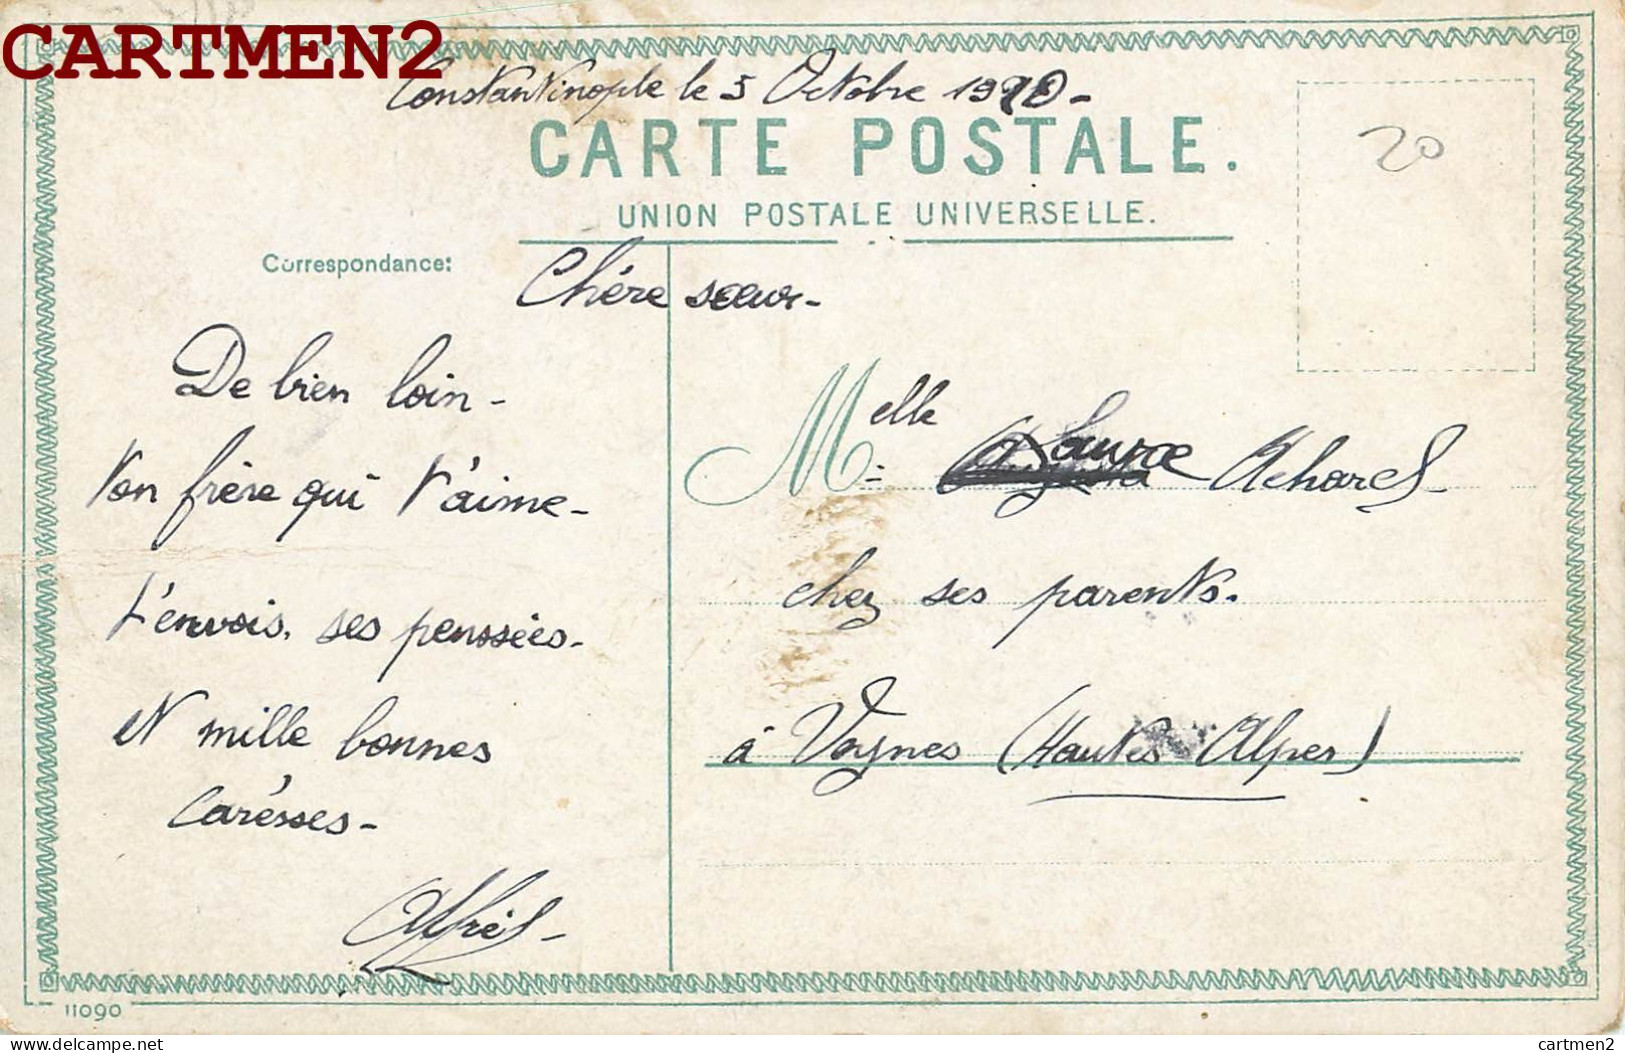 CARTMEN2
Constantinople le 5 Octobre 1920-
CARTE POSTALE.
UNION POSTALE UNIVERSELLE.
20
Correspondance:
Chére sœur-
De bien loin-
ton frère qui t'aime-
t'envois. ses penssées-
et mille bonnes
Carésses-
Alfred-
Melle Laure Achard
chez ses parents.
à Veynes (Hautes Alpes)
11090
delcampe.net
cartmen2